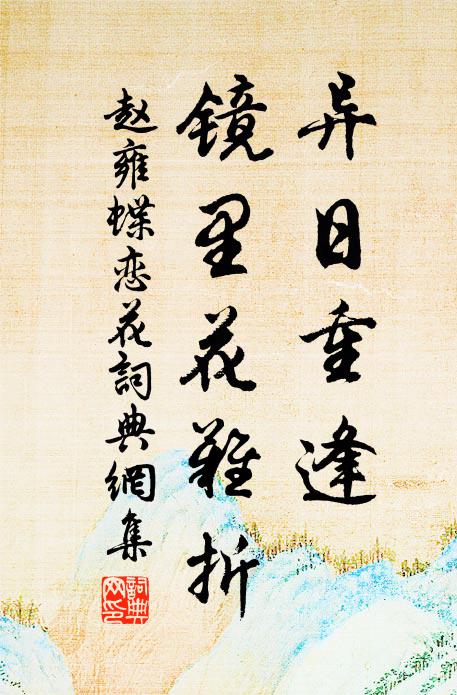 异日重逢
镜里花难折
赵雍蝶恋花詞典網集
詞典網印